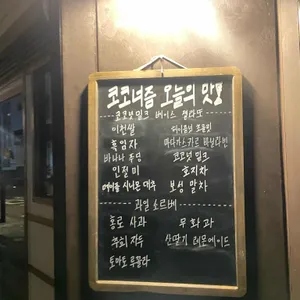 코코너즘 오늘의 맛!
코코넛밀크 베이스 젤라또
이천쌀
흑임자
마다가스카르 바닐라빈
바나나 푸딩
코코넛 밀크
인절미
호지차
메이플 시나몬 대추
보성 말차
과일 소르베
홍로 사과
무화과
추희 자두
산딸기 레몬에이드
토마토 루꼴라